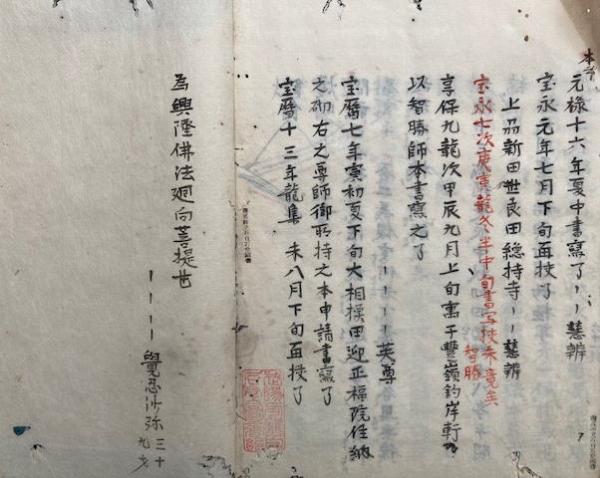 本云
元禄十六年夏中書寫了〻〻慧辨
宝永元年七月下旬面授了
上品新田世良田總持寺〻〻慧辨
宝永七次庚寅龍冬半中旬書写校朱竟矣
智勝
享保九龍次甲辰九月上旬寓于豐嶺釣岸軒
以智勝師本書寫之了
〻〻〻〻英尊
宝暦七年寅初夏下旬大相模田迎正福院住
之砌右之尊師御所持之本申請書寫了
宝暦十三年龍集未八月下旬面授了
為興隆佛法廻向菩提也
〻〻〻〻覺忍沙弥三十九才